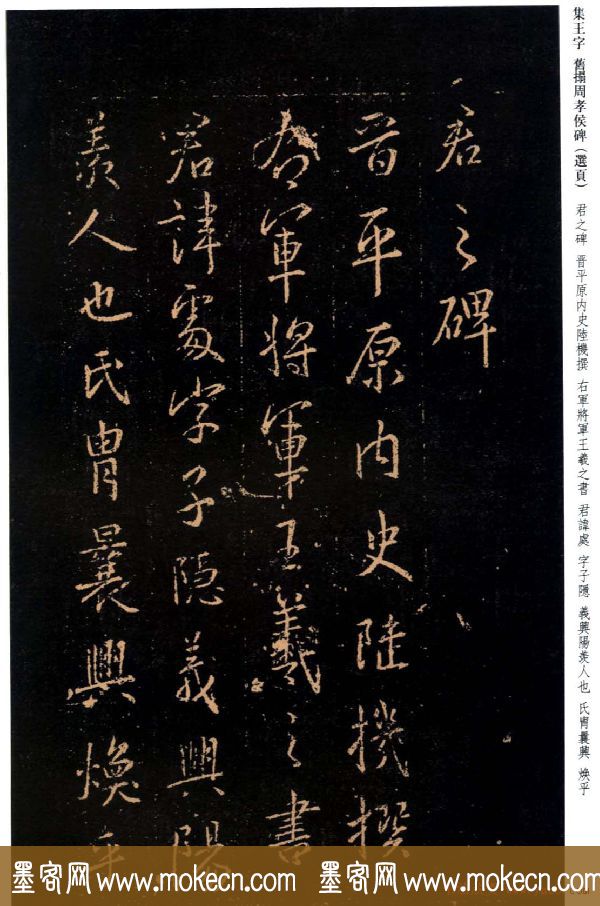 集王字 舊搨周孝侯碑（選頁） 君之碑 晋平原内史陸機撰 右軍將軍王羲之書 君諱處 字子隱 義興陽羨人也 氏胄曩興 焕乎
君之碑
晋平原内史陸機撰
右軍將軍王羲之書
君諱處字子隱義興陽
羨人也氏胄曩興焕乎
墨客网 www.mokecn.com 墨客网 www.mokecn.com